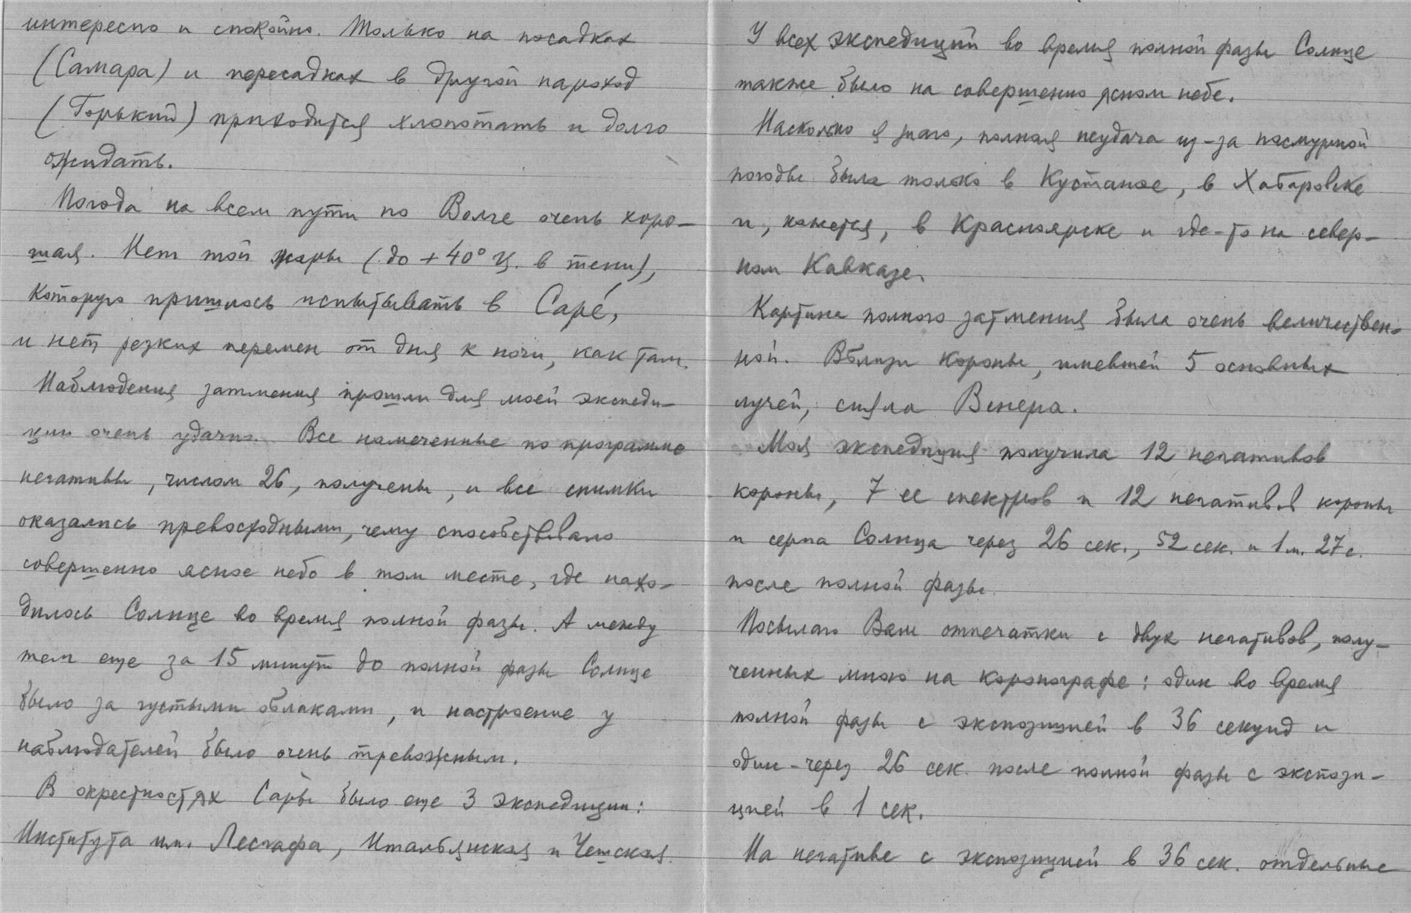 интересно и спокойно. Только на посадках
(Самара) и пересадках в другой пароход
(Горький) приходится хлопотать и долго
ожидать.
Погода на всем пути по Волге очень хоро-
шая. Нет той жары (до +40° Ц. в тени),
которую пришлось испытывать в Саре́,
и нет резких перемен от дня к ночи, как там.
Наблюдения затмения прошли для моей экспеди-
ции очень удачно. Все намеченные по программе
негативы, числом 26, получены, и все снимки
оказались превосходными, чему способствовало
совершенно ясное небо в том месте, где нахо-
дилось Солнце во время полной фазы. А между
тем еще за 15 минут до полной фазы Солнце
было за густыми облаками, и настроение у
наблюдателей было очень тревожным.
В окрестностях Сары было еще 3 экспедиции:
Института им. Лесгафта, Итальянская и Чешская.
У всех экспедиций во время полной фазы Солнце
также было на совершенно ясном небе.
Насколько я знаю, полная неудача из-за пасмурной
погоды была только в Кустанае, в Хабаровске
и, кажется, в Красноярске и где-то на север-
ном Кавказе.
Картина полного затмения была очень величествен-
ной. Вблизи короны, имевшей 5 основных
лучей, сияла Венера.
Моя экспедиция получила 12 негативов
короны, 7 ее спектров и 12 негативов короны
и серпа Солнца через 26 сек., 52 сек. и 1 м. 27 с.
после полной фазы.
Посылаю Вам отпечатки с двух негативов, полу-
ченных мною на коронографе: один во время
полной фазы с экспозицией в 36 секунд и
один - через 26 сек. после полной фазы с экспози-
цией в 1 сек.
На негативе с экспозицией в 36 сек. отдельные